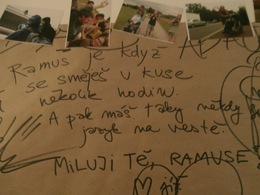 RAMUS JE KDYŽ
SE SMĚJEŠ V KUSE
NĚKOLIK HODIN.
A PAK MÁŠ TAKY NĚKDY
JAZYK NA VESTĚ.
MILUJI TĚ, RAMUSE